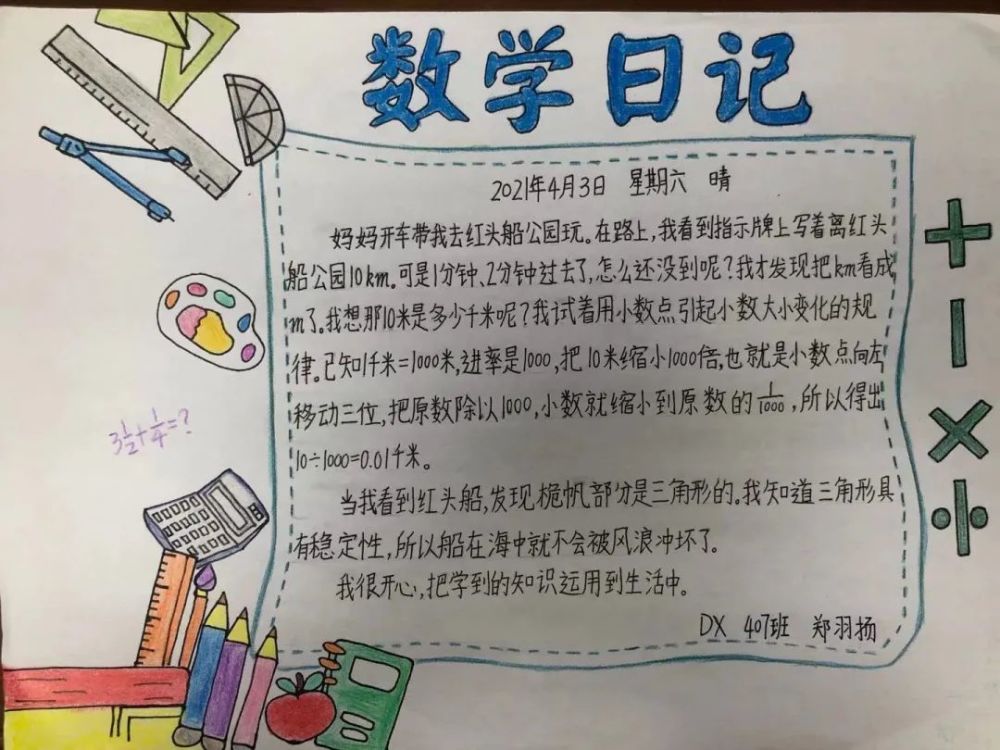 数学日记
2021年4月3日 星期六 晴
妈妈开车带我去红头船公园玩。在路上,我看到指示牌上写着离红头
船公园10km。可是1分钟、2分钟过去了,怎么还没到呢?我才发现把km看成
m了。我想那10米是多少千米呢?我试着用小数点引起小数大小变化的规
律。已知1千米=1000米,进率是1000,把10米缩小1000倍,也就是小数点向左
移动三位,把原数除以1000,小数就缩小到原数的1/1000,所以得出
10÷1000=0.01千米。
当我看到红头船,发现桅帆部分是三角形的。我知道三角形具
有稳定性,所以船在海中就不会被风浪冲坏了。
我很开心,把学到的知识运用到生活中。
DX 407班 郑羽扬
3 1/2+1/4=?
+
-
×
÷